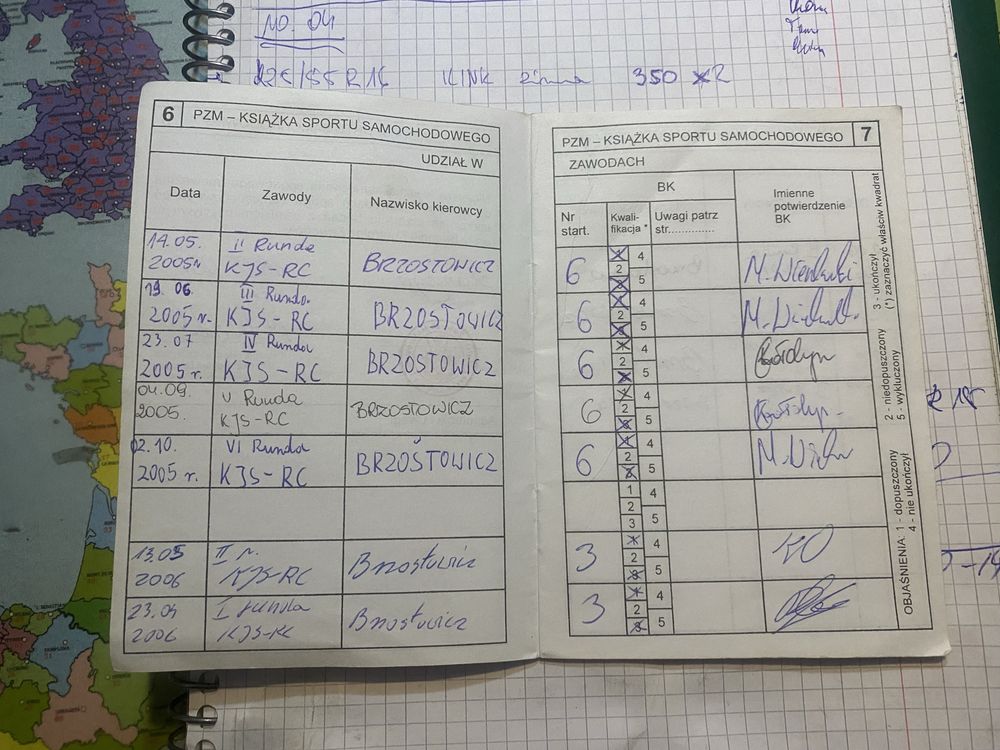 NO. 04
225/55 R16 zima 350 XR
6 PZM – KSIĄŻKA SPORTU SAMOCHODOWEGO
UDZIAŁ W
Data Zawody Nazwisko kierowcy
14.05. II Runda
2005r KJS-RC BRZOSTOWICZ
19.06. III Runda
2005r. KJS-RC BRZOSTOWICZ
23.07 IV Runda
2005r. KJS-RC BRZOSTOWICZ
04.09. V Runda
2005. KJS-RC BRZOSTOWICZ
02.10. VI Runda
2005r. KJS-RC BRZOSTOWICZ
13.05 II r.
2006 KJS-RC Brzostowicz
23.04 I runda
2006 KJS-RC Brzostowicz
PZM – KSIĄŻKA SPORTU SAMOCHODOWEGO 7
ZAWODACH
BK
Imienne
potwierdzenie
BK
Nr
start.
Kwali-
fikacja *
Uwagi patrz
str..............
6 1 4
2
3 5
6 1 4
2
3 5
6 1 4
2
3 5
6 1 4
2
3 5
6 1 4
2
3 5
1 4
2
3 5
3 1 4
2
3 5
KO
3 1 4
2
3 5
OBJAŚNIENIA 1 - dopuszczony 2 - niedopuszczony 3 - ukończył
4 - nie ukończył 5 - wykluczony (*) zaznaczyć właściw kwadrat